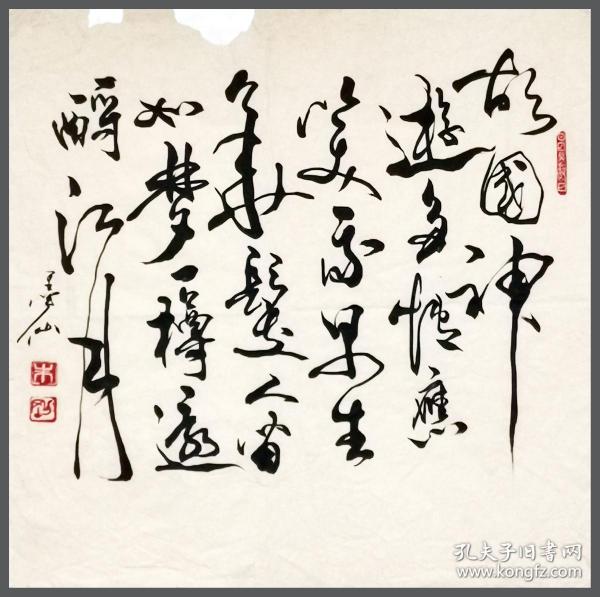 故國神
遊多情應
笑我早生
華髮人間
如夢一樽還
酹江月
孔夫子旧书网
www.kongfz.com